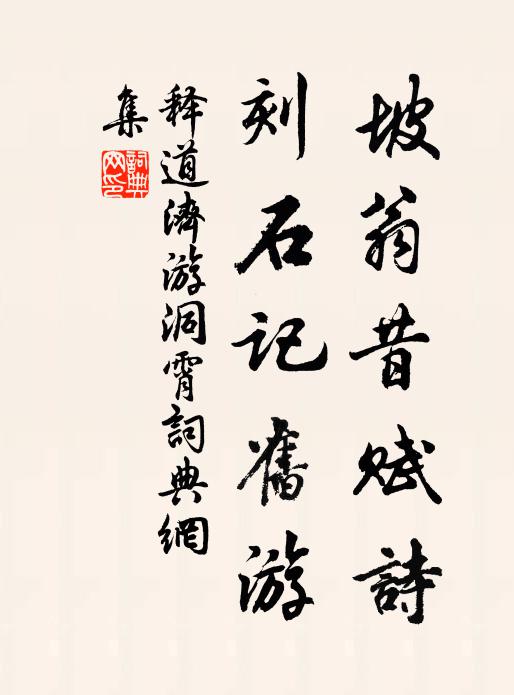 坡翁昔赋詩
刻石記舊游
释道濟游洞霄詞典網
集
詞典
网印